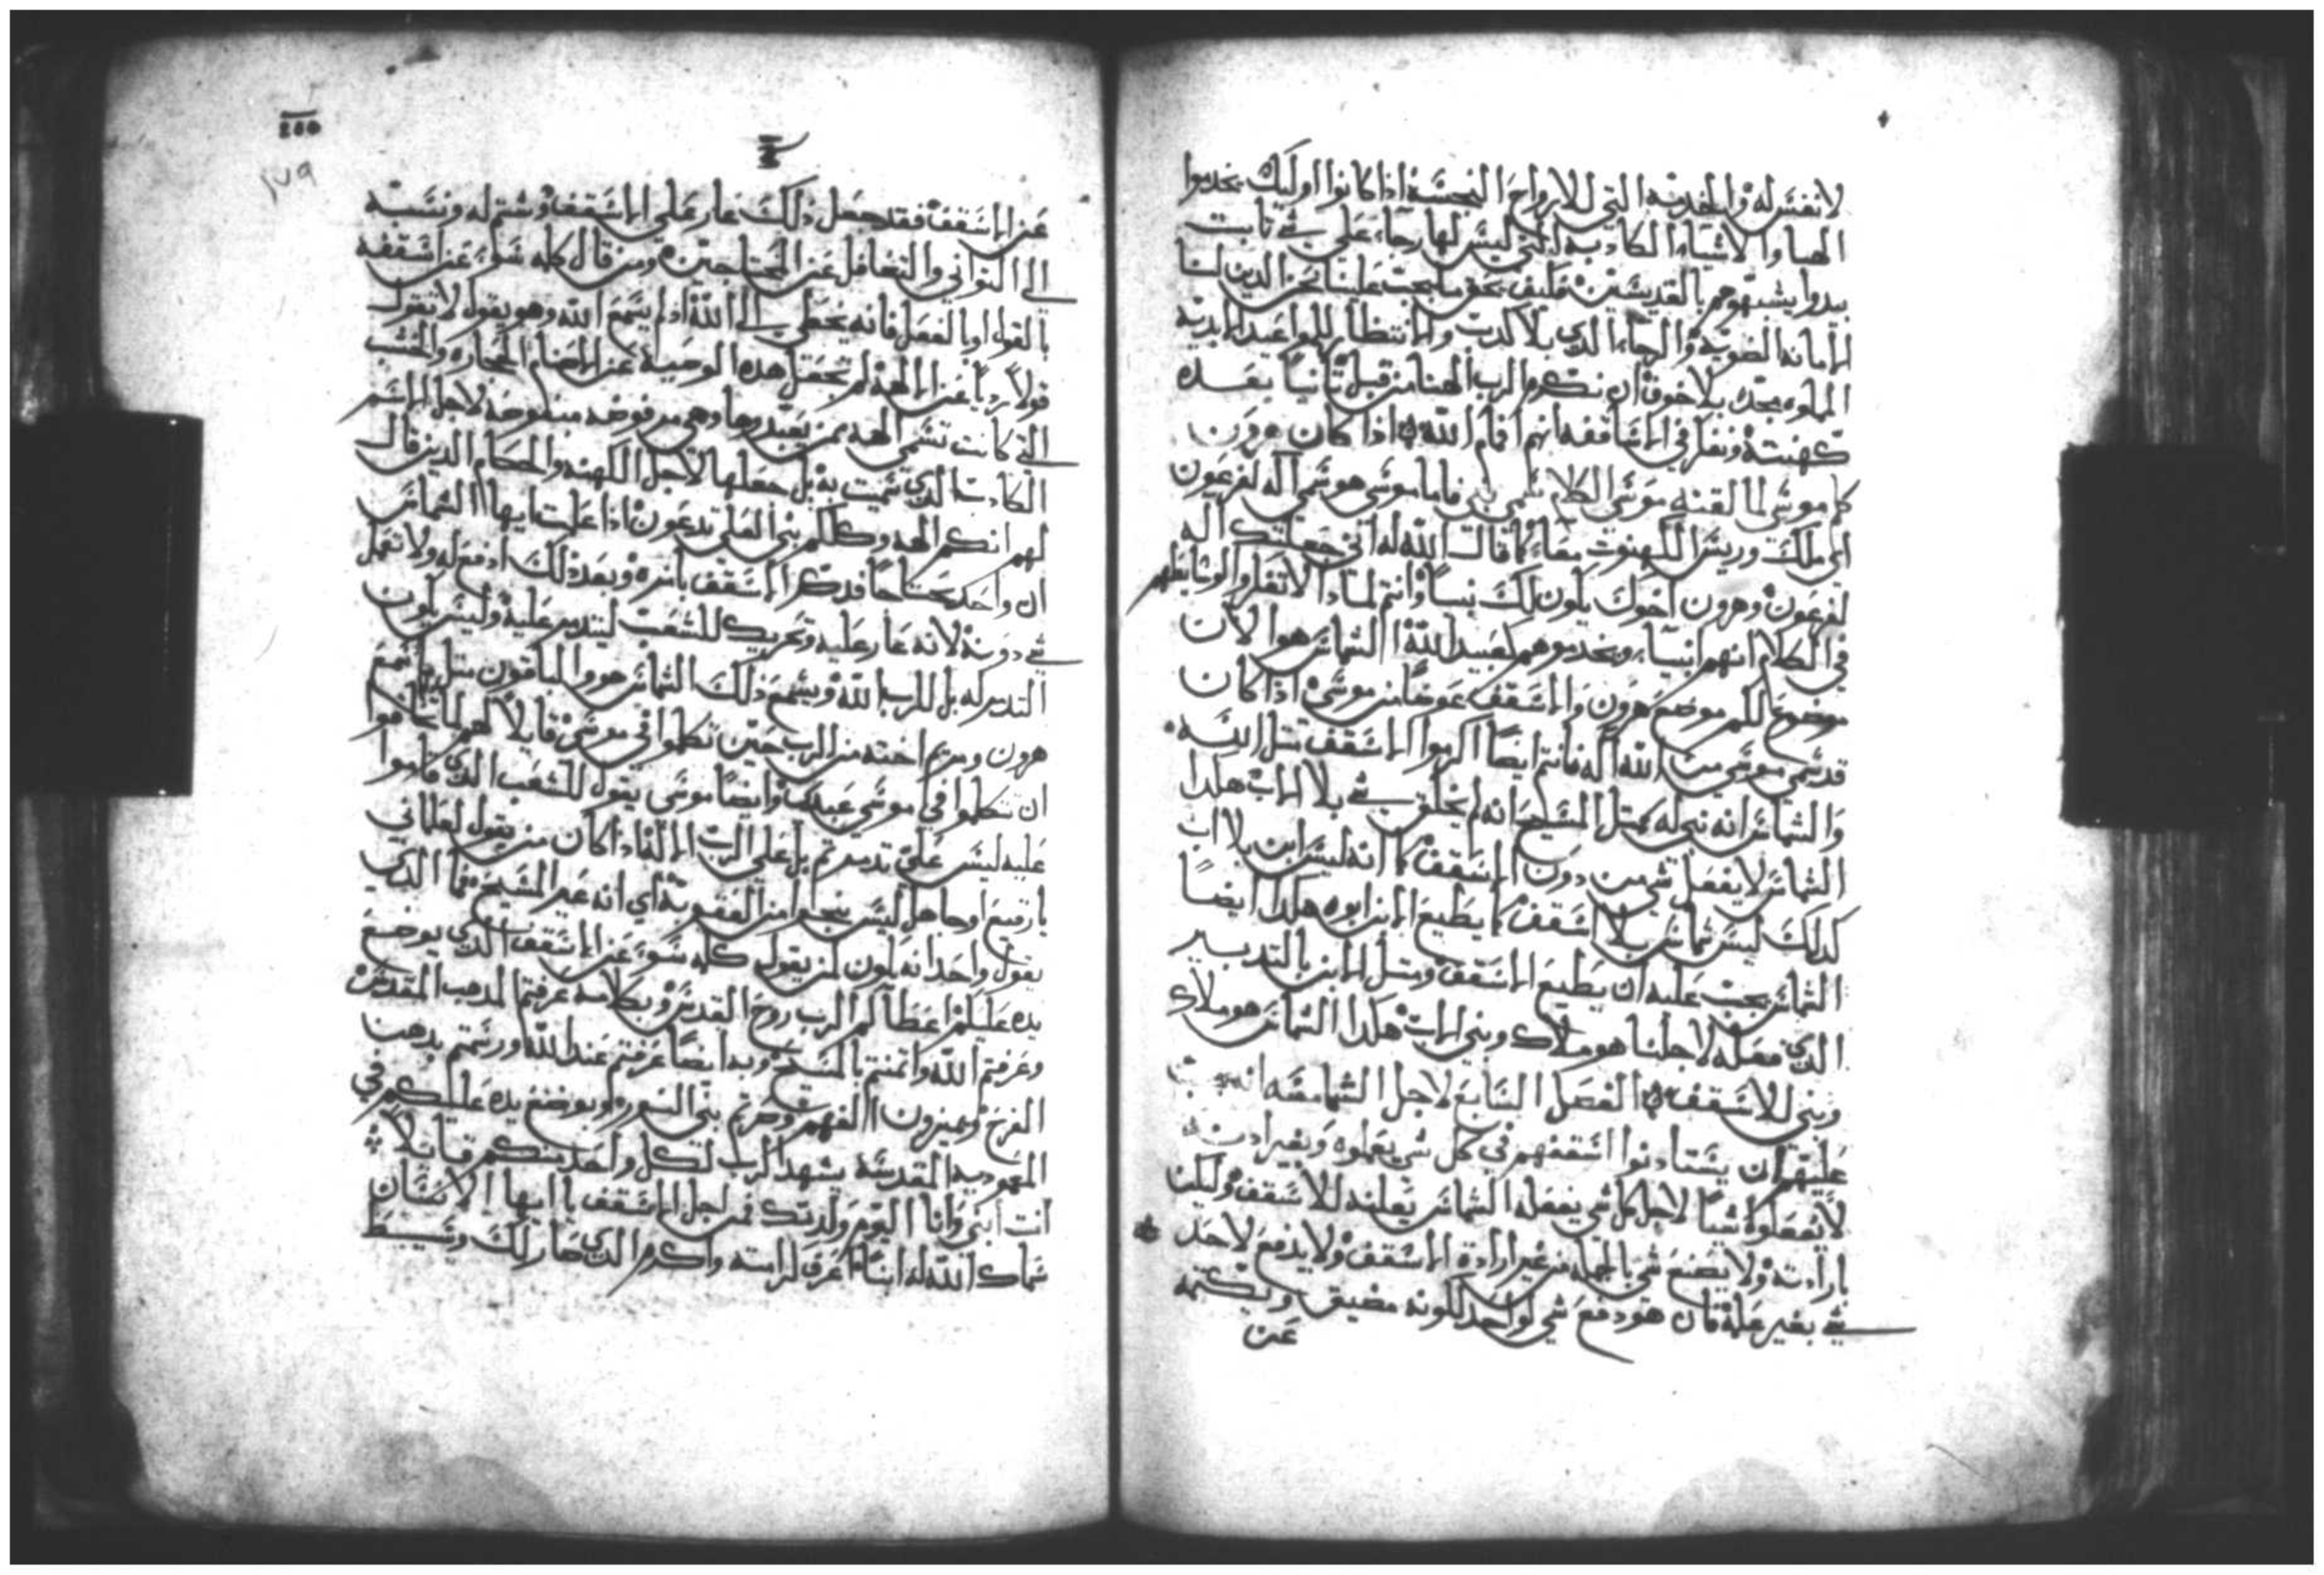 لانفس له والخدمة التي للارواح النجسة اذا كانوا اوليك يخدموا
الهبا والاشياء الكادبه التي ليس لها رجاء على شي تابت
بيدوا يشبهوهم بالقديسين فليف بحق ما يجب علينا نحن الدين لنا
الامانه الضويه والرجاء الدي بلا كدب والانتظار للمواعيد الابديه
المملوه مجد بلا خوف ان نكرم الرب الهنا من قبل تانيا بعده
كهنته ونفلر في الاساقفه انهم افام الله اذا كان هرون
كلم موسى لما لقنه موسى الكلام سمي نبي فاما موسى هو سمي اله لفرعون
اي ملك وريس الكهنوت معا كما قال الله له اني جعلتك اله
لفرعون وهرون اخوك يلون لك نبيا وانتم لمادا لا تفلروا الوسايط لهم
في الكلام انهم انبيا ويخدموهم كعبيد الله الشماس هوا الان
موضوع للم موضع هرون والاسقف عوضا من موسى اذا كان
قد سمي موسى من الله اله فانتم ايضا اكرموا الاسقف متل الله
والشماس انه نبي له كمتل المسيح انه لم يخلق شي بلا الاب هلدا
الشماس لا يفعل شي من دون الاسقف كما انه ليس ابن بلا اب
كدلك ليس شماس بلا اسقف كما يطيع الابن ابوه هكدا ايضا
الشماس يجب عليه ان يطيع الاسقف ومتل الابن بالتدبير
الدي فعله لاجلنا هو ملاك ونبي الاب هكدا الشماس هو ملاك
ونبي للاسقف الفصل السابع لاجل الشمامسه انه يجب
عليهم ان يستادنوا اسقفهم في كل شي يعملوه وبغير ادنه
لا تفعلوا شيا لاجل كل شي يفعله الشماس يعلنه للاسقف وليلن
بارادته ولا يصنع شي بالجمله من غير ارادة الاسقف ولا يدفع لاحد
شي بغير علمه فان هو دفع شي لواحد للونه مضيق ويكتمه
عن
٢٧٩
عن الاسقف فقد جعل دلك عار على الاسقف وشتم له ونسبه
الى التواني والتغافل عن المحتاجين ومن قال كلمه سو عن اسقفه
بالقول او بالفعل فانه يخطي الى الله اد لم يسمع الله وهو يقول لا تقول
قولا رديا عن الالهة لم تجعل هده الوصيه عن الاصنام الحجاره والخشب
التي كانت تسمى الهه ممن يعبدوها وهي مرفوضه لاجل الاسم
الكادب الدي سميت به بل جعلها لاجل الكهنه والحكام الدين قال
لهم انكم الهه وكلكم بني العلي تدعون اذا علمت ايها الشماس
ان واحد محتاجا فدكر الاسقف بامره وبعد دلك ادفع له ولا تعمل
شي دونه لانه عار عليه وتحريك للشعب ليتدمر عليه وليس يلون
التدمر له بل للرب الله ويسمع ذلك الشماس هو والباقون متل ما سمع
هرون ومريم اخته من الرب حين تكلموا في موسى قايلا لهم لما تخافوا
ان تتكلموا في موسى عبدي وايضا موسى يقول للشعب الدي قاموا
عليه ليس علي تدمرتم بل على الرب الالة فادا كان من يقول لعلماني
يا رقيع او جاهل ليس ينجوا من العقوبة اي انه غير المسيح فما الدي
يقول واحد انه يلون لمن يقول كلمه سو عن الاسقف الدي بوضع
يده عليلم اعطاكم الرب روح القدس وبكلامه عرفتم المدهب المقدس
وعرفتم الله وامنتم بالمسيح وبه ايضا عرفتم عند الله ورسمتم بدهن
الفرح وميرون الفهم وصرتم بني النور وبوضع يده عليكم في
المعموديه المقدسه يشهد الرب لكل واحد منكم قايلا
انت ابني وانا اليوم ولدتك فمن اجل الاسقف يا ايها الانسان
سماك الله له ابنا اعرف كرامته واكرم الدي صار لك وسيط